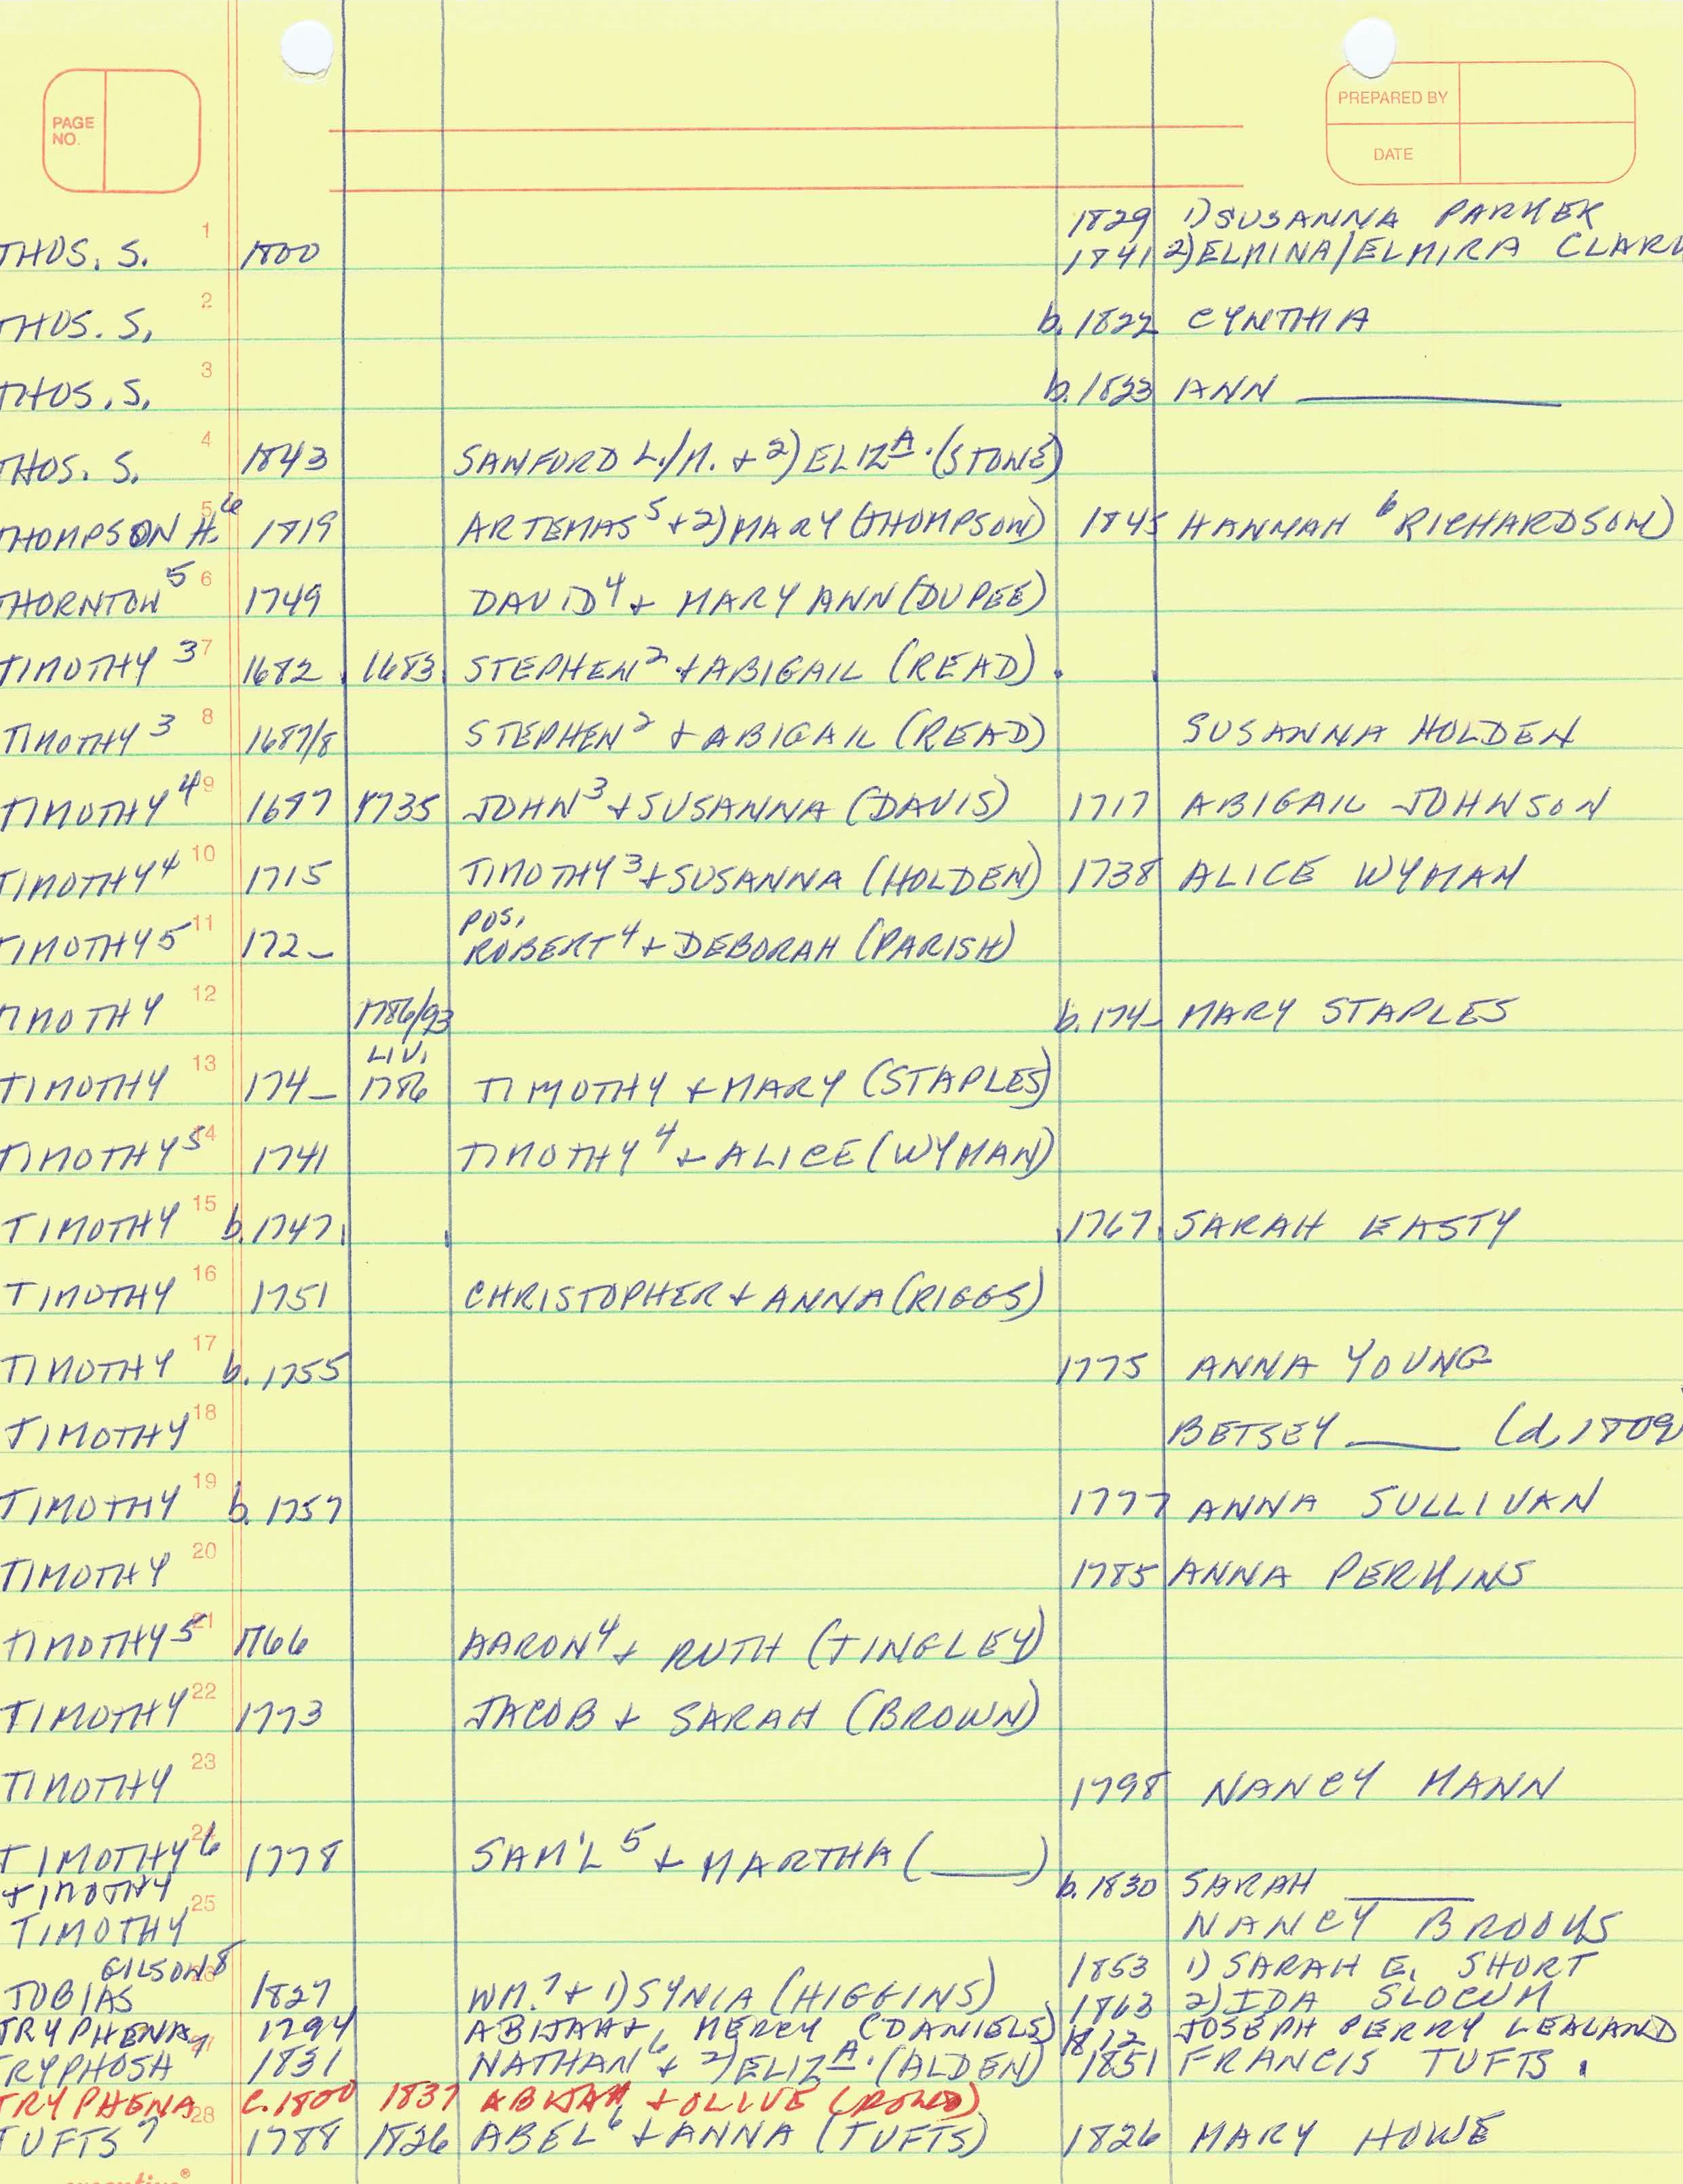 PAGE NO.
PREPARED BY
DATE
1829 1) SUSANNA PARKER
THOS. S. 1 1800 1841 2) ELMINA/ELMIRA CLARK
THOS. S. 2 b. 1822 CYNTHIA
THOS. S. 3 b. 1823 ANN ____
THOS. S. 4 1843 SANFORD L./M. + 2) ELIZA. (STONE)
THOMPSON H.6 5 1819 ARTEMAS5 + 2) MARY (THOMPSON) 1845 HANNAH 6 RICHARDSON)
THORNTON5 6 1749 DAVID4 + MARY ANN (DUPEE)
TIMOTHY 3 7 1682 1683 STEPHEN2 + ABIGAIL (READ)
TIMOTHY 3 8 1687/8 STEPHEN2 + ABIGAIL (READ) SUSANNA HOLDEN
TIMOTHY4 9 1697 1735 JOHN3 + SUSANNA (DAVIS) 1717 ABIGAIL JOHNSON
TIMOTHY4 10 1715 TIMOTHY3 + SUSANNA (HOLDEN) 1738 ALICE WYMAN
POS.
TIMOTHY5 11 172_ ROBERT4 + DEBORAH (PARISH)
TIMOTHY 12 1786/93 b. 174_ MARY STAPLES
LIV.
TIMOTHY 13 174_ 1786 TIMOTHY + MARY (STAPLES)
TIMOTHY5 14 1741 TIMOTHY4 + ALICE (WYMAN)
TIMOTHY 15 b. 1747 1767 SARAH EASTY
TIMOTHY 16 1751 CHRISTOPHER + ANNA (RIGGS)
TIMOTHY 17 b. 1755 1775 ANNA YOUNG
TIMOTHY 18 BETSEY ____ (d. 1809
TIMOTHY 19 b. 1757 1777 ANNA SULLIVAN
TIMOTHY 20 1785 ANNA PERKINS
TIMOTHY5 21 1766 AARON4 + RUTH (TINGLEY)
TIMOTHY 22 1773 JACOB + SARAH (BROWN)
TIMOTHY 23 1798 NANCY MANN
TIMOTHY6 24 1778 SAM'L5 + MARTHA (____)
TIMOTHY b. 1830 SARAH ____
TIMOTHY 25 NANCY BROOKS
GILSON8 1853 1) SARAH E. SHORT
TOBIAS 26 1827 WM.7 + 1) SYNIA (HIGGINS) 1863 2) IDA SLOCUM
TRYPHENA 1794 ABIJAH + MERCY (DANIELS) 1812 JOSEPH PERRY LEALAND
TRYPHOSA7 1831 NATHAN6 + 2) ELIZA. (ALDEN) 1851 FRANCIS TUFTS.
TRYPHENA 28 C. 1800 1837 ABIJAH + OLLIVE
TUFTS7 1788 1826 ABEL6 + ANNA (TUFTS) 1826 MARY HOWE